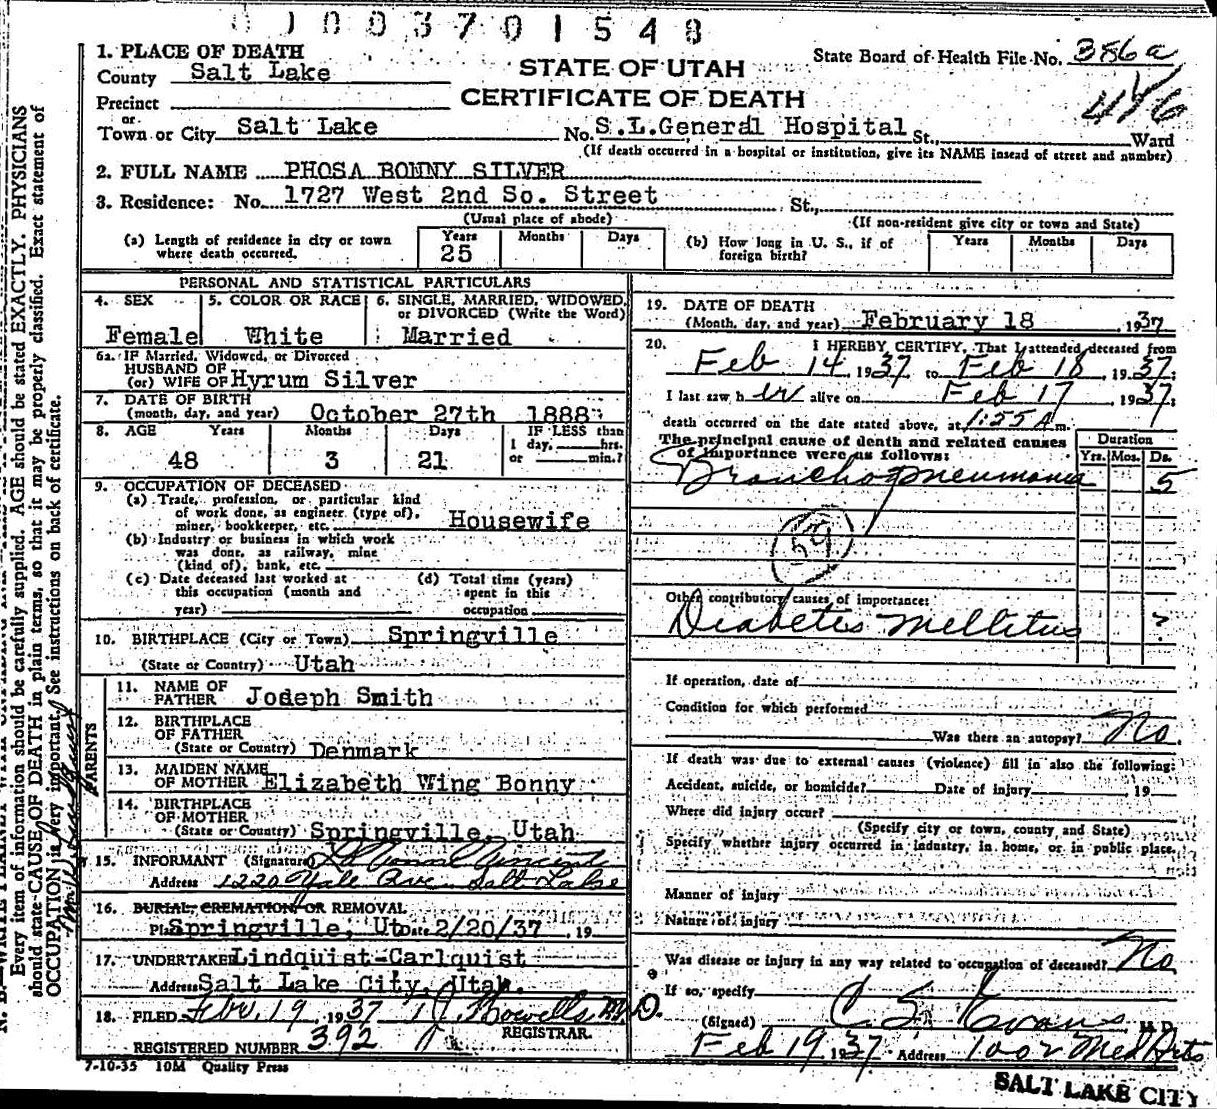 0 1 0 0 3 7 0 1 5 4 8
1. PLACE OF DEATH
County Salt Lake
STATE OF UTAH
State Board of Health File No. 386a
Precinct
CERTIFICATE OF DEATH
446
or
Town or City Salt Lake No. S.L.General Hospital St., Ward
(If death occurred in a hospital or institution, give its NAME insead of street and number)
2. FULL NAME PHOSA BONNY SILVER
3. Residence: No. 1727 West 2nd So. Street St.,
(Usual place of abode) (If non-resident give city or town and State)
(a) Length of residence in city or town where death occurred. Years 25 Months Days
(b) How long in U. S., if of foreign birth? Years Months Days
PERSONAL AND STATISTICAL PARTICULARS
4. SEX 5. COLOR OR RACE 6. SINGLE, MARRIED, WIDOWED, or DIVORCED (Write the Word)
Female White Married
6a. IF Married, Widowed, or Divorced
HUSBAND OF
(or) WIFE OF Hyrum Silver
7. DATE OF BIRTH
(month, day, and year) October 27th 1888
8. AGE Years Months Days IF LESS than
1 day, hrs.
48 3 21 or min.?
9. OCCUPATION OF DECEASED
(a) Trade, profession, or particular kind
of work done, as engineer (type of),
miner, bookkeeper, etc. Housewife
(b) Industry or business in which work
was done, as railway, mine
(kind of), bank, etc.
(c) Date deceased last worked at
this occupation (month and
year)
(d) Total time (years)
spent in this
occupation
10. BIRTHPLACE (City or Town) Springville
(State or Country) Utah
PARENTS
11. NAME OF
FATHER Jodeph Smith
12. BIRTHPLACE
OF FATHER
(State or Country) Denmark
13. MAIDEN NAME
OF MOTHER Elizabeth Wing Bonny
14. BIRTHPLACE
OF MOTHER
(State or Country) Springville, Utah
15. INFORMANT (Signature)
Address 1220 Yale Ave Salt Lake
16. BURIAL, CREMATION, OR REMOVAL
Springville, Ut Date 2/20/37, 19
17. UNDERTAKER Lindquist-Carlquist
Address Salt Lake City, Utah.
18. FILED Feb. 19 1937 Howells, M.D.
REGISTRAR
REGISTERED NUMBER 392
7-10-35 10M Quality Press
19. DATE OF DEATH
(Month, day, and year) February 18, 1937
20. I HEREBY CERTIFY, That I attended deceased from
Feb 14 1937 to Feb 18, 1937;
I last saw her alive on Feb 17, 1937;
death occurred on the date stated above, at 1:55 A m.
The principal cause of death and related causes
of importance were as follows:
Duration
Yrs. Mos. Ds.
Bronchopneumonia 5
59
Other contributory causes of importance:
Diabetes mellitus ?
If operation, date of
Condition for which performed
Was there an autopsy? No.
If death was due to external causes (violence) fill in also the following:
Accident, suicide, or homicide? Date of injury , 19
Where did injury occur?
(Specify city or town, county, and State)
Specify whether injury occurred in industry, in home, or in public place.
Manner of injury
Nature of injury
Was disease or injury in any way related to occupation of deceased? No
If so, specify
(Signed) C. S. Evans M.D.
Feb 19 1937 Address 1002 Med Arts
SALT LAKE CITY
Every item of information should be carefully supplied. AGE should be stated EXACTLY. PHYSICIANS
should state CAUSE OF DEATH in plain terms, so that it may be properly classified. Exact statement of
OCCUPATION is very important. See instructions on back of certificate.